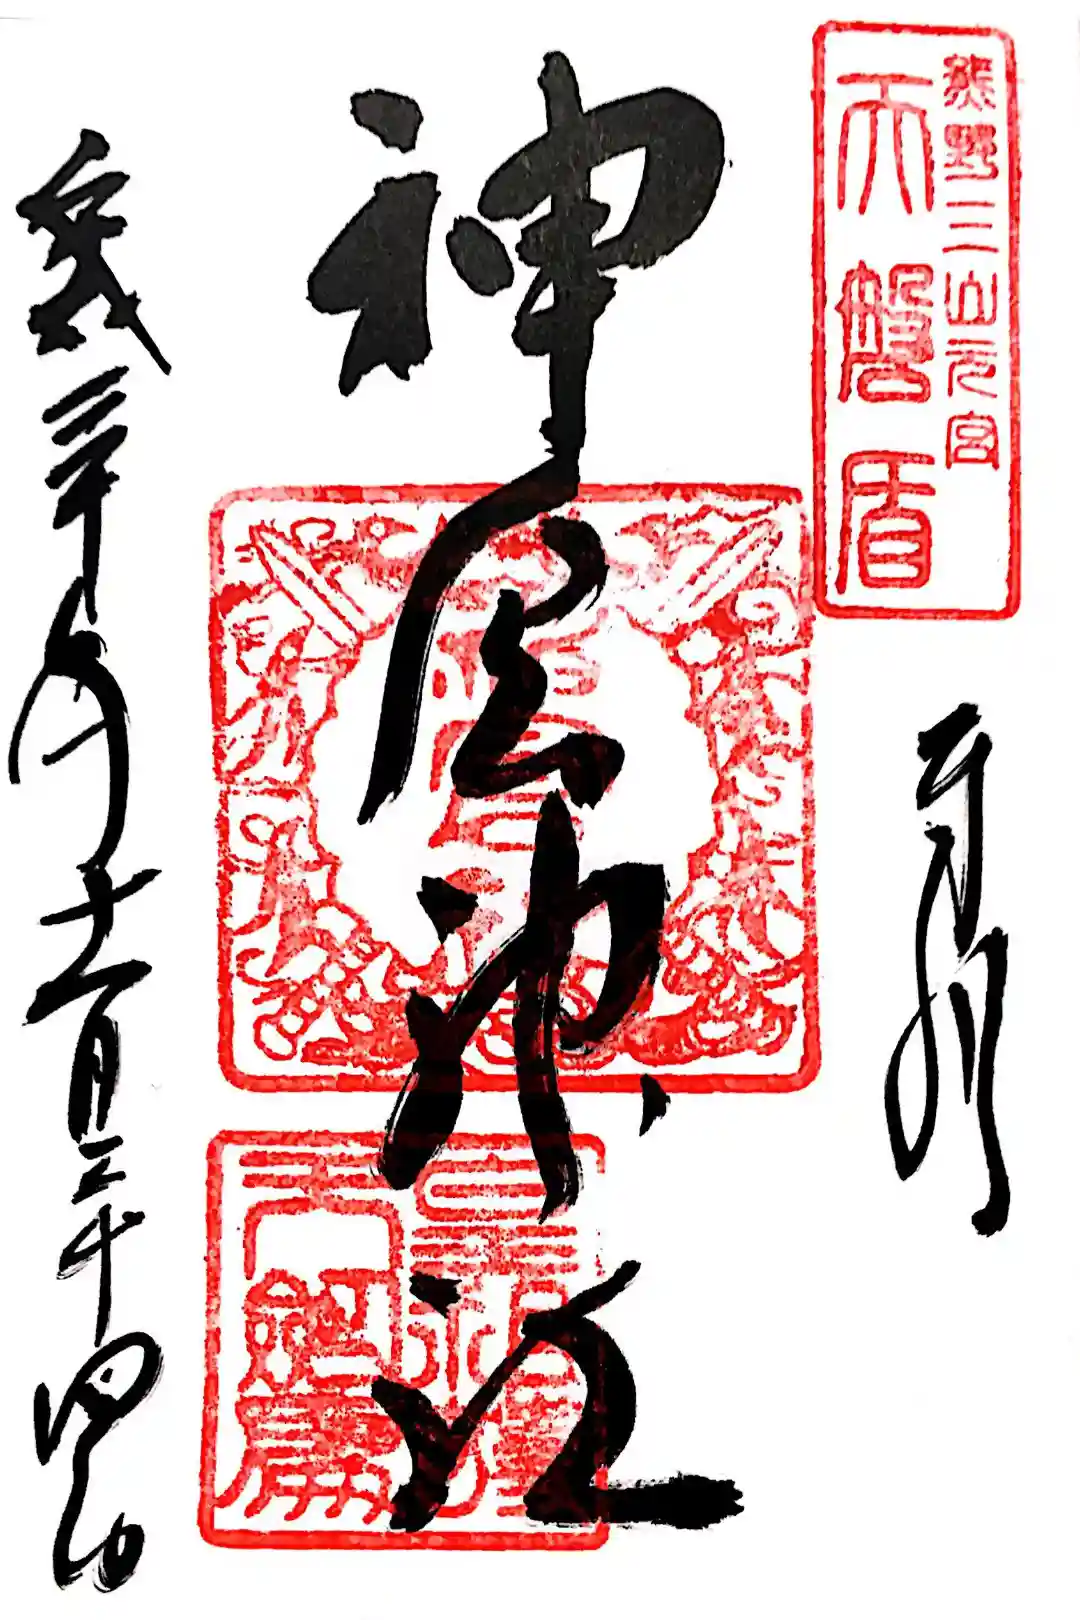 熊野三山元宮
天磐盾
奉拝
神倉神社
平成三十年十一月二十四日